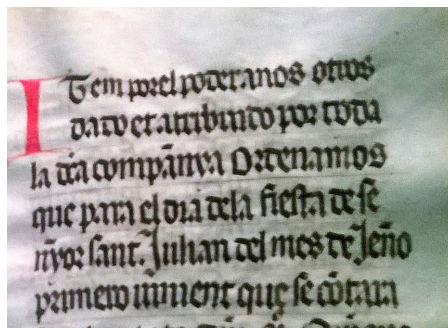 Item por el poder a nos otros
dado et attribuido por toda
la dc̄a companya Ordenamos
que para el dia de la fiesta de se
nyor sant Julian del mes de Jeñо
primero uinient que se cōtara